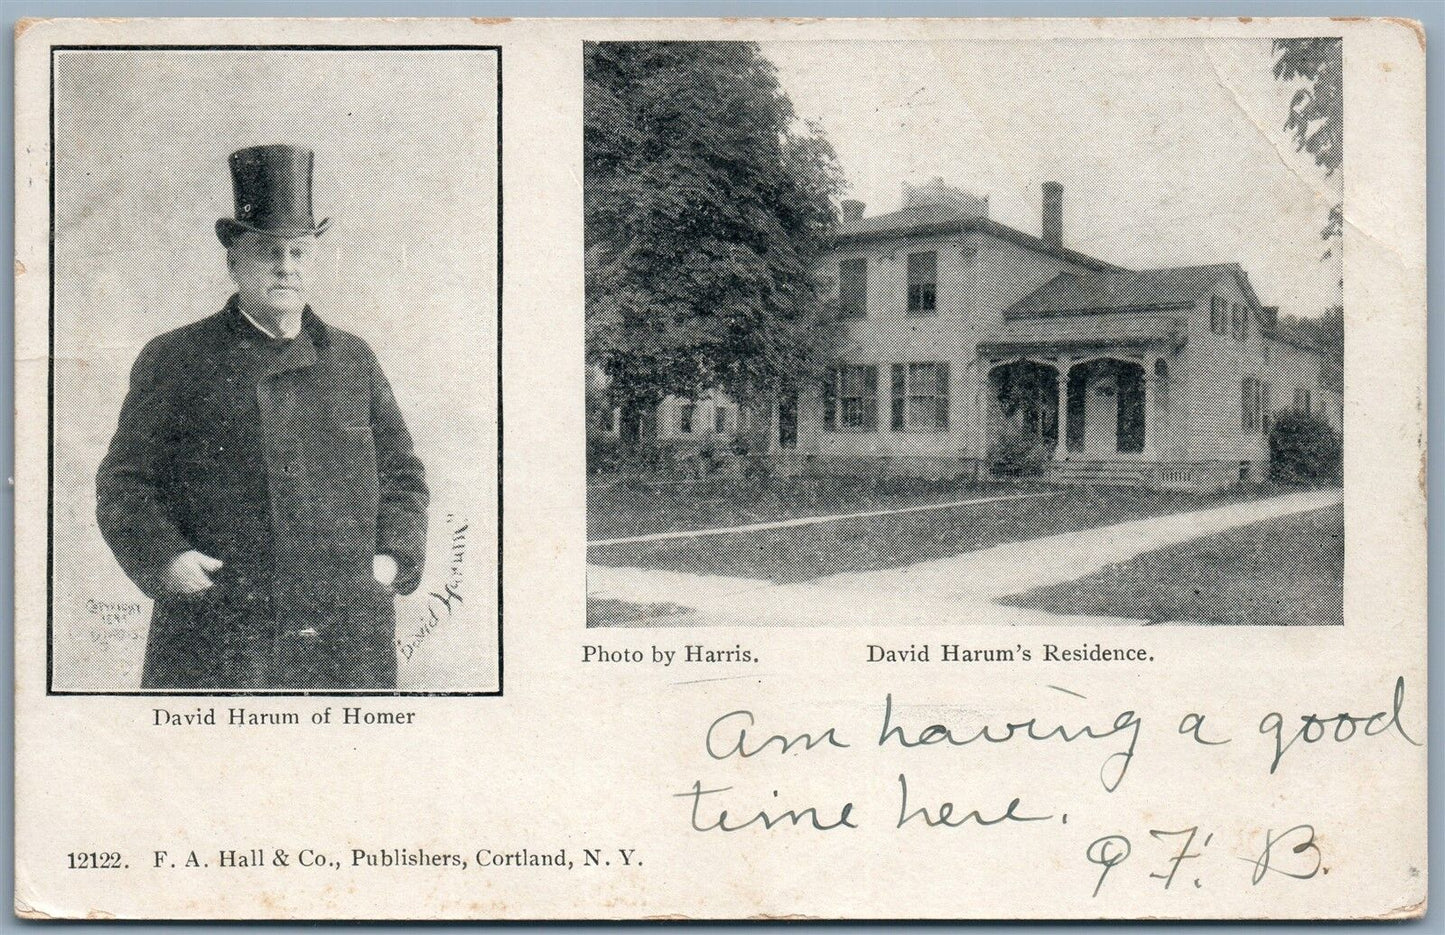 COPYRIGHT
"David Harum"
David Harum of Homer
Photo by Harris.
David Harum's Residence.
Am having a good
time here.
F. B.
12122. F. A. Hall & Co., Publishers, Cortland, N. Y.